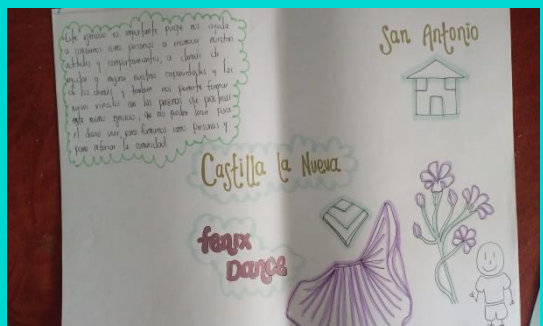 Este ejercicio es importante porque nos ayuda
a conocernos como personas a reconocer nuestras
actitudes y comportamientos, a demás de
impulsar y mejorar nuestras capacidades y las
de los demás, y tambien nos permite formar
nuevos vinculos con las personas que practican
este mismo ejercicio, que nos pueden servir para
el diario vivir, para formarnos como personas y
para reforzar la comunidad.
San Antonio
Castilla la Nueva
fenix
Dance